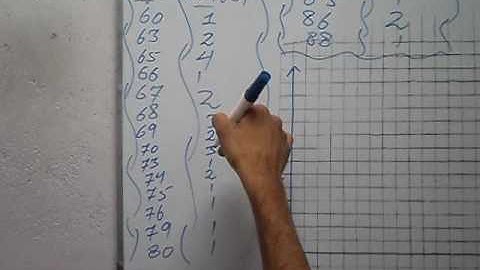 60 1
63 2
65 4
66 1
67 2
68
69 2
70 3
73 1
74 2
75 1
76 1
79 1
80 1
86 2
88 1